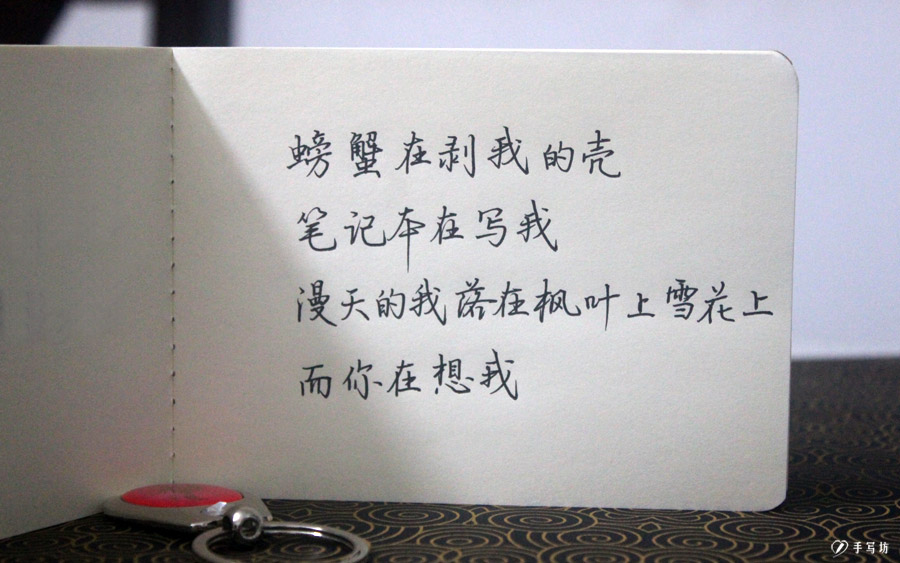 螃蟹在剥我的壳
笔记本在写我
漫天的我落在枫叶上雪花上
而你在想我
手写坊